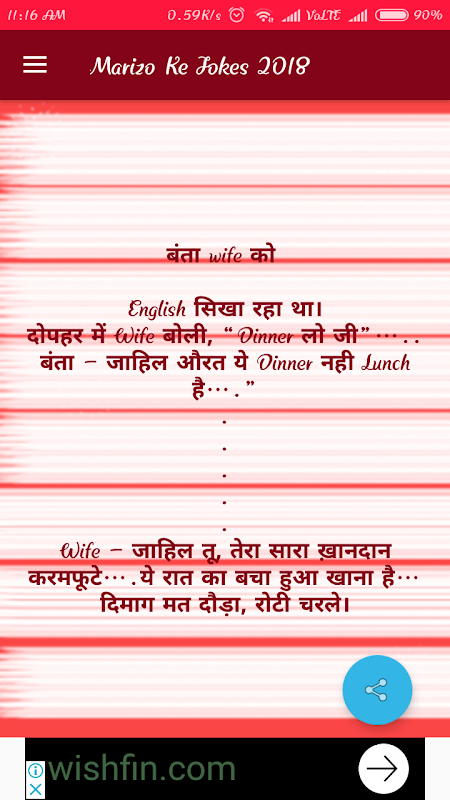 11:16 AM 0.59K/s VoLTE 90%
Marizo Ke Jokes 2018
बंता wife को
English सिखा रहा था।
दोपहर में Wife बोली, “Dinner लो जी”···. .
बंता – जाहिल औरत ये Dinner नही Lunch
है···. ”
.
.
.
.
.
Wife – जाहिल तू, तेरा सारा ख़ानदान
करमफूटे···.ये रात का बचा हुआ खाना है···
दिमाग मत दौड़ा, रोटी चरले।
wishfin.com